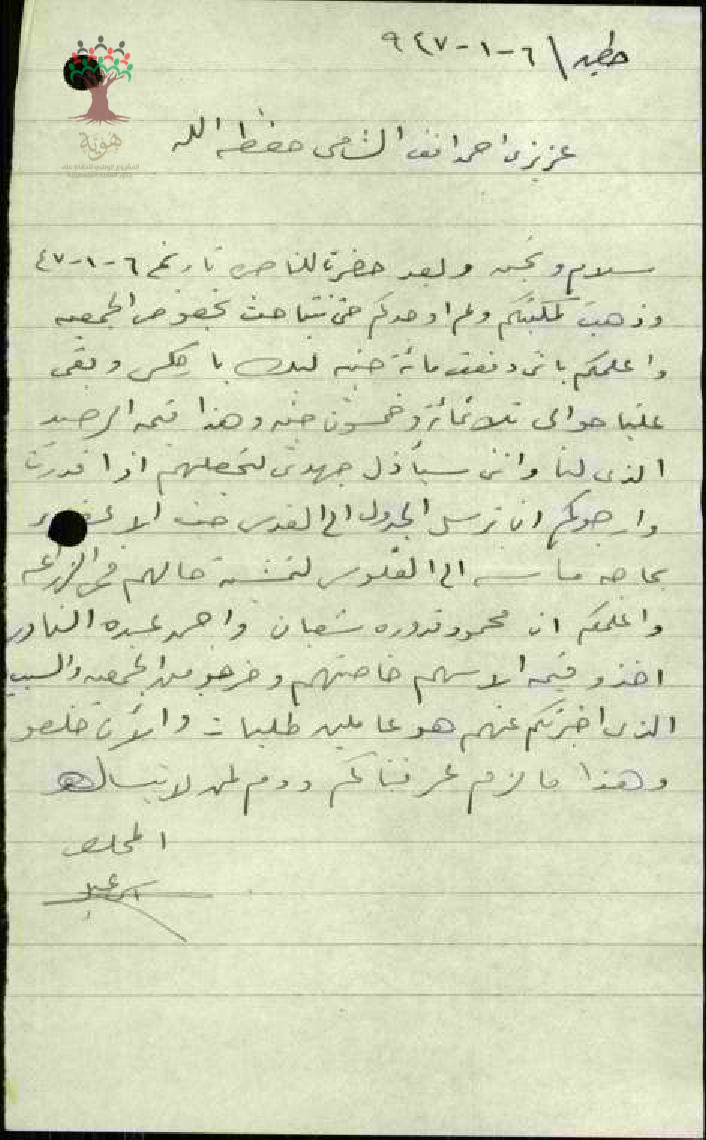 حطين / ٦-١-٩٤٧
عزيزي احمد افند الشامي حفظه الله
سلام وتحيه وبعد حضرت للناصره تاريخ ٦-١-٤٧
وذهبت لمكتبكم ولم اوجدكم حتى نتباحث بخصوص الجمعيه
واعلمكم باني دفعت مائة جنيه لبنك باركلس وبقي
علينا حوالي ثلاثمائة وخمسون جنيه وهذا قيمه الرصيد
الذي لنا وانني سأبذل جهدي لتحصلهم اذا قدرت
وارجوكم ان ترسل الجدول الى القدس حيث الاعضاء
بحاجه ماسه الى الفلوس لتمشية حالهم في الزراعه
واعلمكم ان محمود قدوره شعبان واحمد عبده
اخذو قيمه الاسهم خاصتهم وخرجو من الجمعيه والسبب
الذي اخبرتكم عنهم هو عاملين طلبات والآن خلصو
وهذا ما لزم عرفناكم ودم لمن لا ينساك
المخلص
هوية